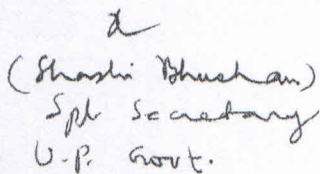 (Shashi Bhushan)
Spl. Secretary
U.P. Govt.